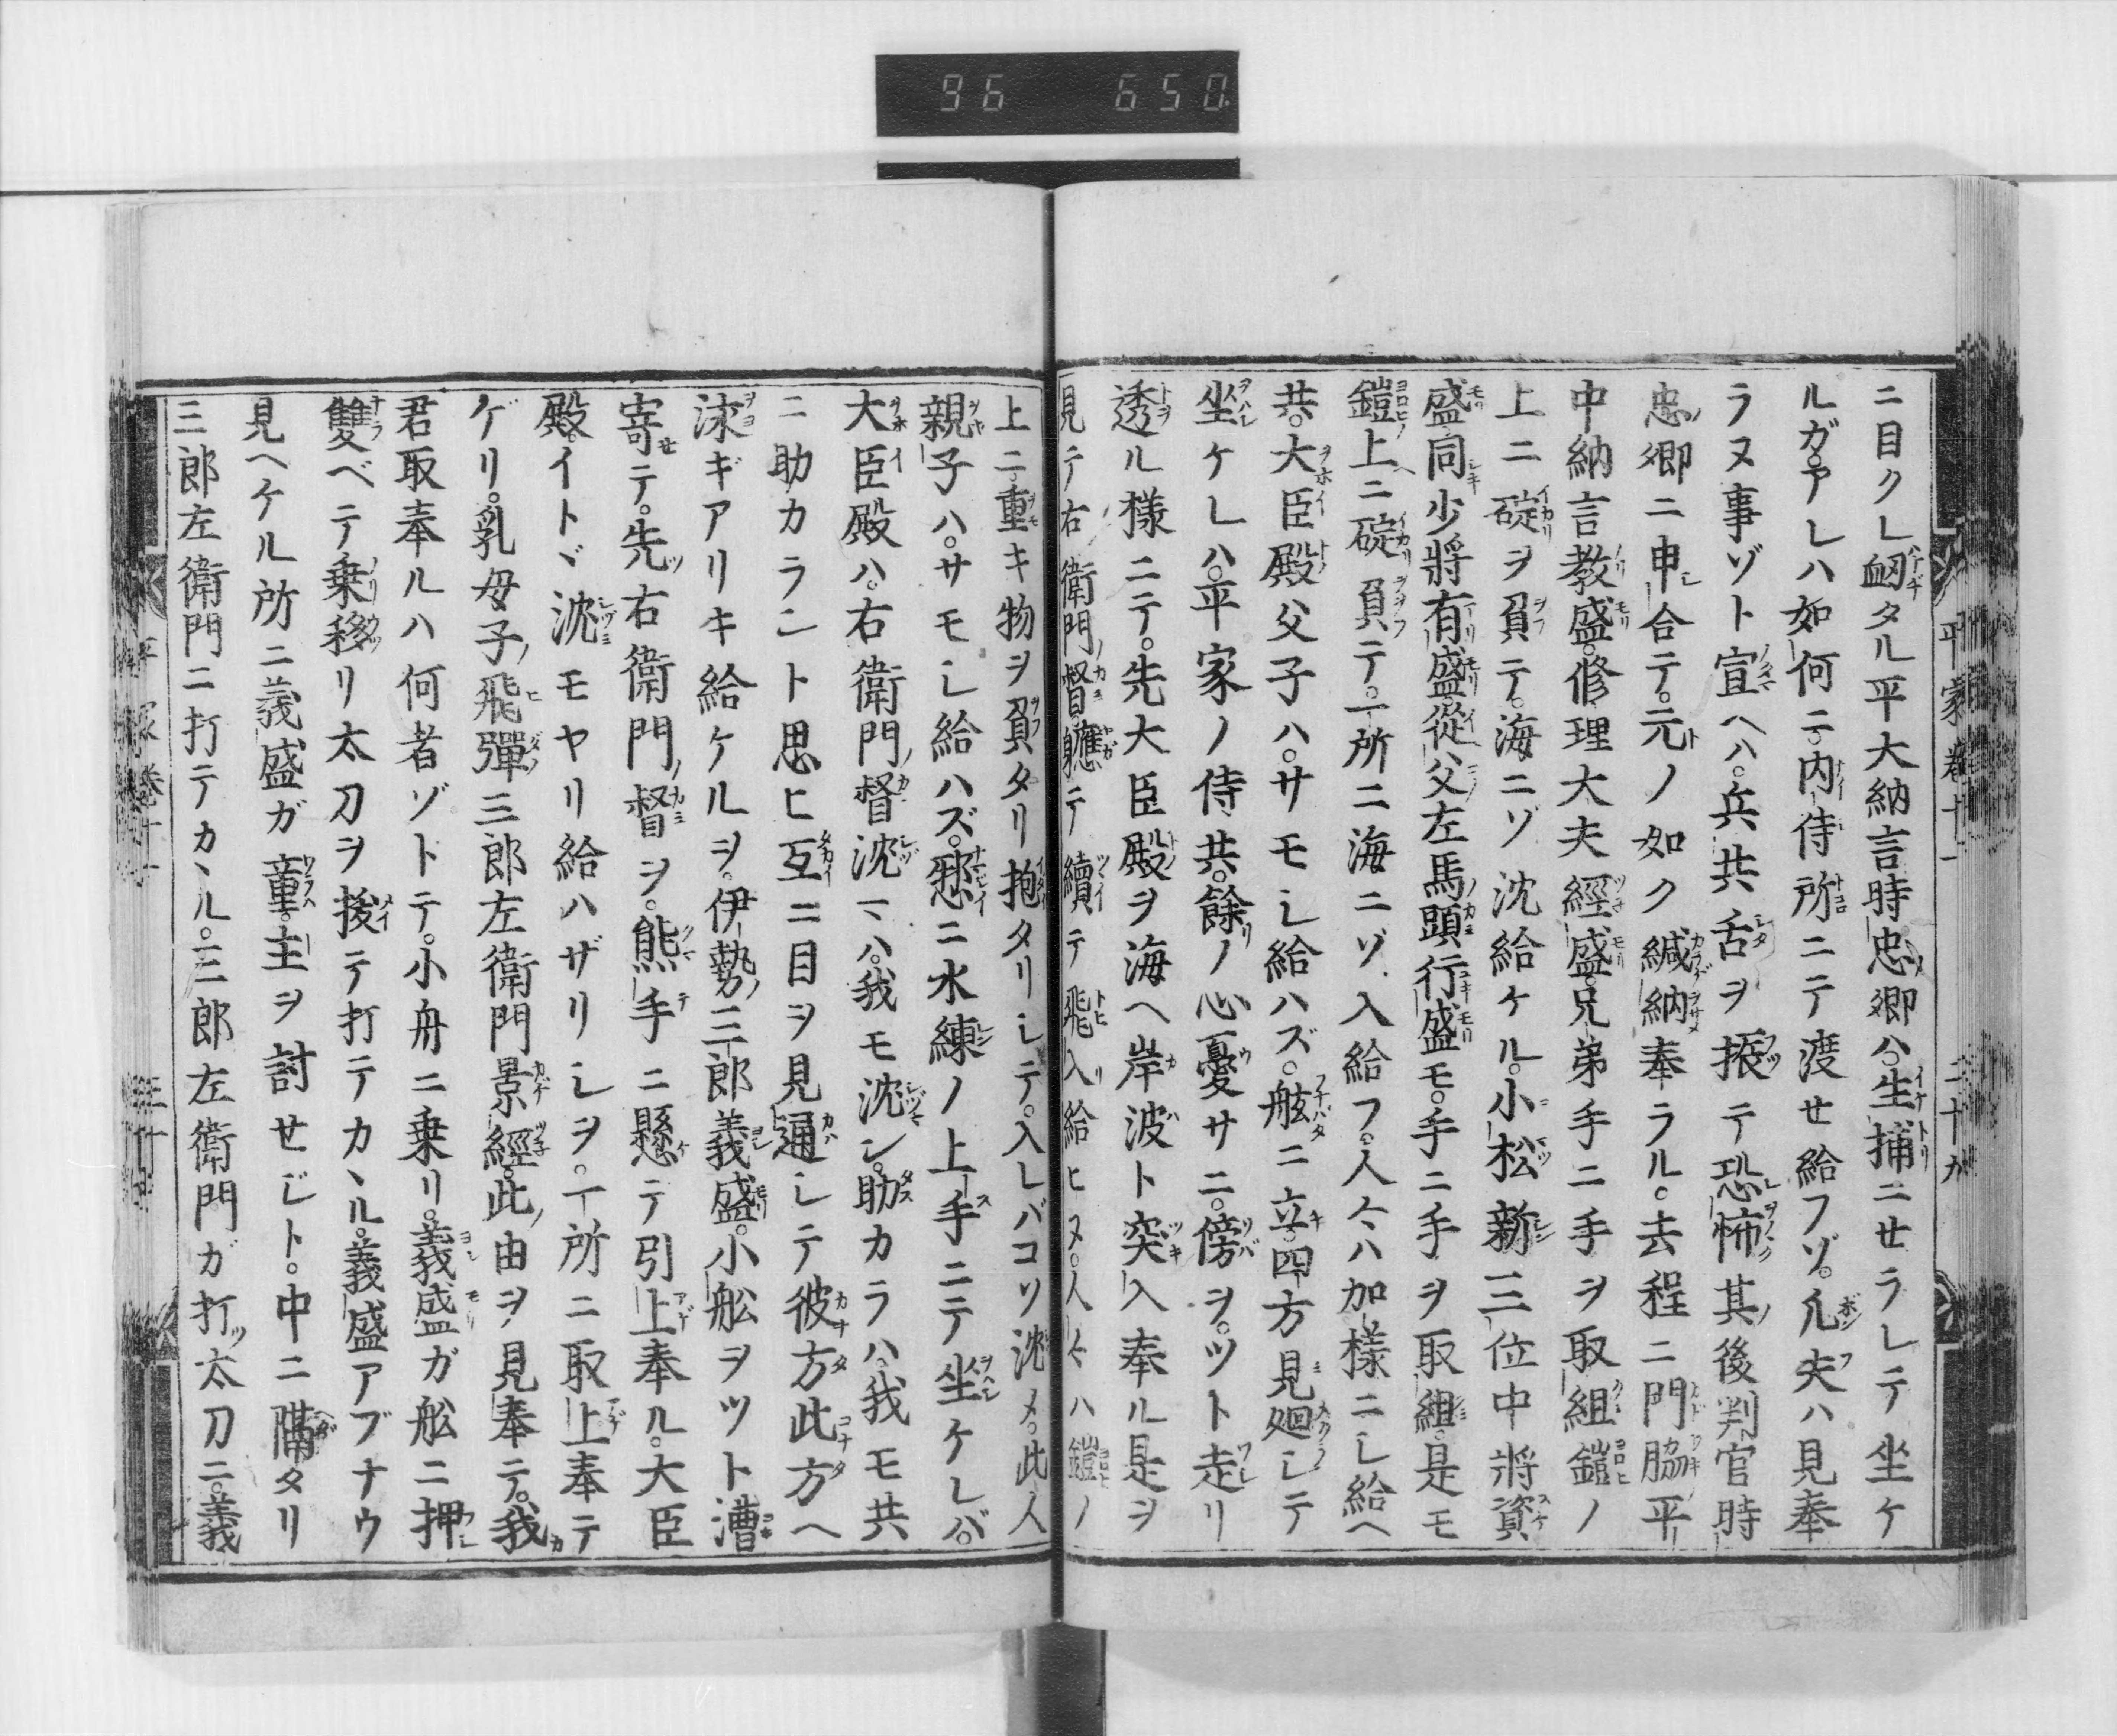 96 650
平家巻十一 二十九
ニ目クレ衂タル平大納言時忠卿ハ。生捕ニせラレテ坐ケ
ルガ。アレハ如何ニ。内侍所ニテ渡せ給フゾ。凡夫ハ見奉
ラヌ事ゾト宣ヘハ。兵共舌ヲ振テ恐怖其後判官時
忠卿ニ申合テ。元ノ如ク緘納奉ラル。去程ニ門脇平
中納言教盛。修理大夫經盛。兄弟手ニ手ヲ取組鎧ノ
上ニ碇ヲ負テ。海ニゾ沈給ケル。小松新三位中將資
盛。同少將有盛。從父左馬頭行盛モ。手ニ手ヲ取組。是モ
鎧上ニ碇負テ。一所ニ海ニゾ入給フ。人々ハ加樣ニし給ヘ
共。大臣殿父子ハ。サモし給ハズ。舷ニ立。四方見廻しテ
坐ケレハ。平家ノ侍共。餘ノ心憂サニ。傍ヲ。ツト走リ
透ル樣ニテ。先大臣殿ヲ海ヘ岸波ト突入奉ル是ヲ
見テ右衛門督。軈テ續テ飛入給ヒヌ。人々ハ鎧ノ
上ニ重キ物ヲ負タリ抱タリしテ。入レバコソ沈メ。此人
親子ハ。サモし給ハズ。憖ニ水練ノ上手ニテ坐ケレバ。
大臣殿ハ。右衛門督沈マハ。我モ沈ン。助カラハ。我モ共
ニ助カラント思ヒ互ニ目ヲ見通しテ彼方此方ヘ
泳ギアリキ給ケルヲ。伊勢三郎義盛。小舩ヲツト漕
寄テ。先右衛門督ヲ。熊手ニ懸テ引上奉ル。大臣
殿。イトヾ沈モヤリ給ハザリしヲ。一所ニ取上奉テ
ゲリ。乳母子飛彈三郎左衛門景經。此由ヲ見奉テ。我
君取奉ルハ何者ゾトテ。小舟ニ乗リ。義盛ガ舩ニ押
雙ベテ乗移リ太刀ヲ拔テ打テカヽル。義盛アブナウ
見ヘケル所ニ義盛ガ童。主ヲ討せじト。中ニ隔タリ
三郎左衛門ニ打テカヽル。三郎左衛門ガ打太刀ニ。義